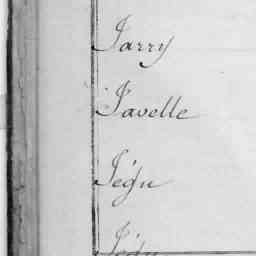 Jarry
Javelle
Jégu
Jégu